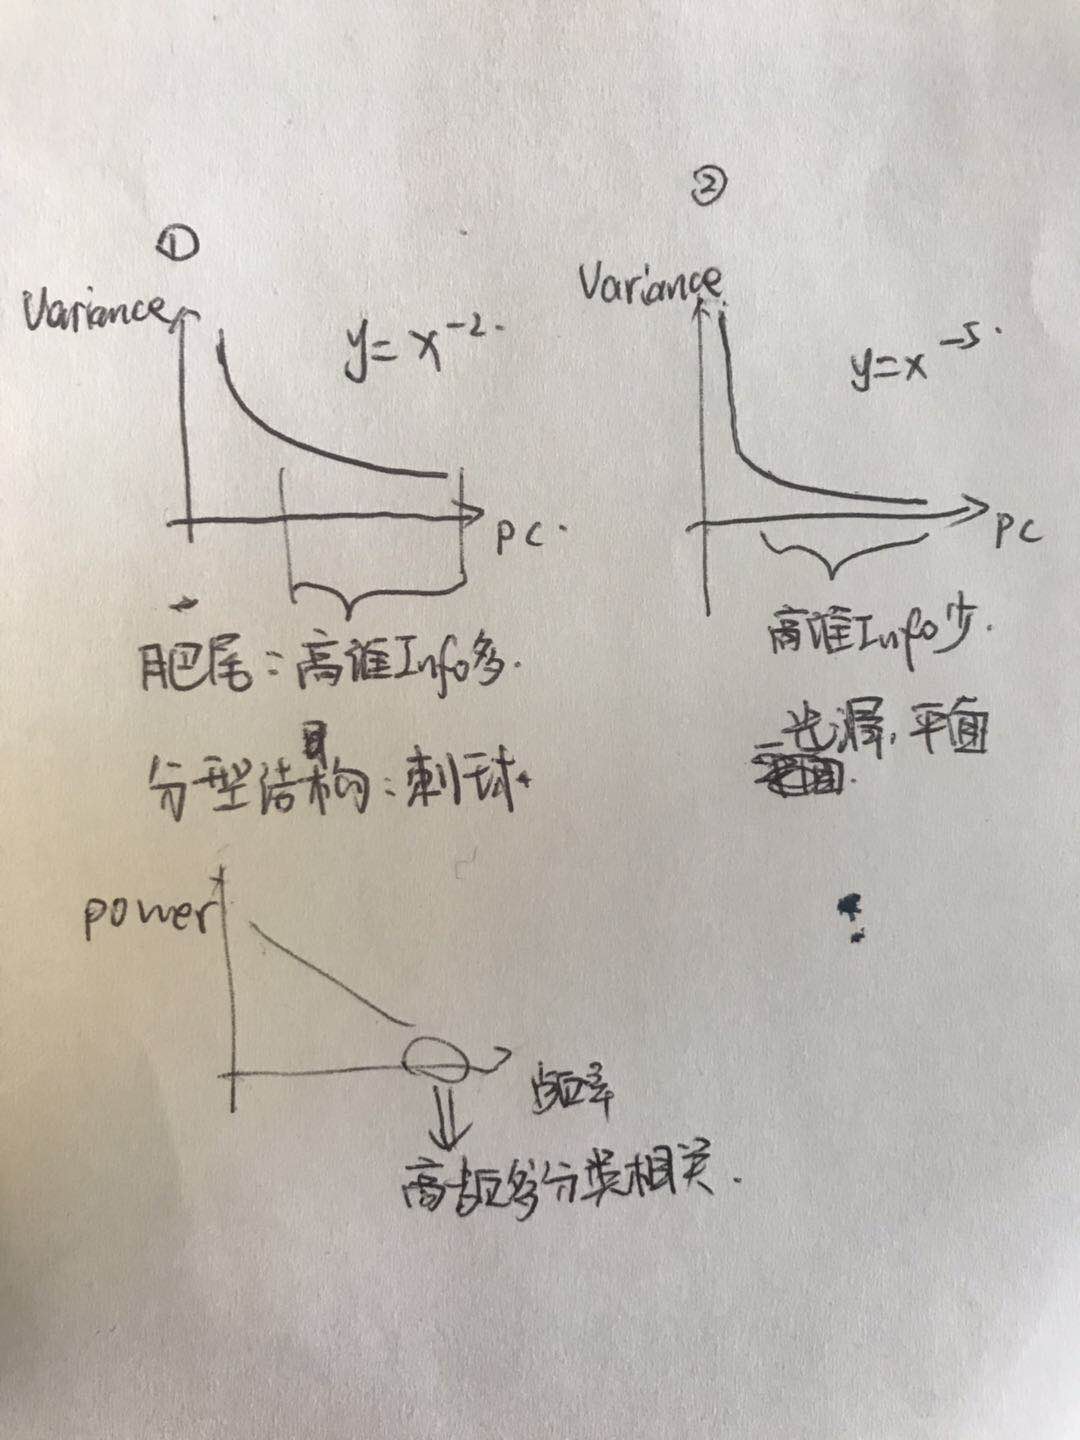 ①
Variance
y = x⁻²
PC
肥尾：高谁Info多.
分型结构：刺球
②
Variance
y=x⁻⁵
PC
高谁Info少.
光滑, 平面
power
频率
高频多分类相关.